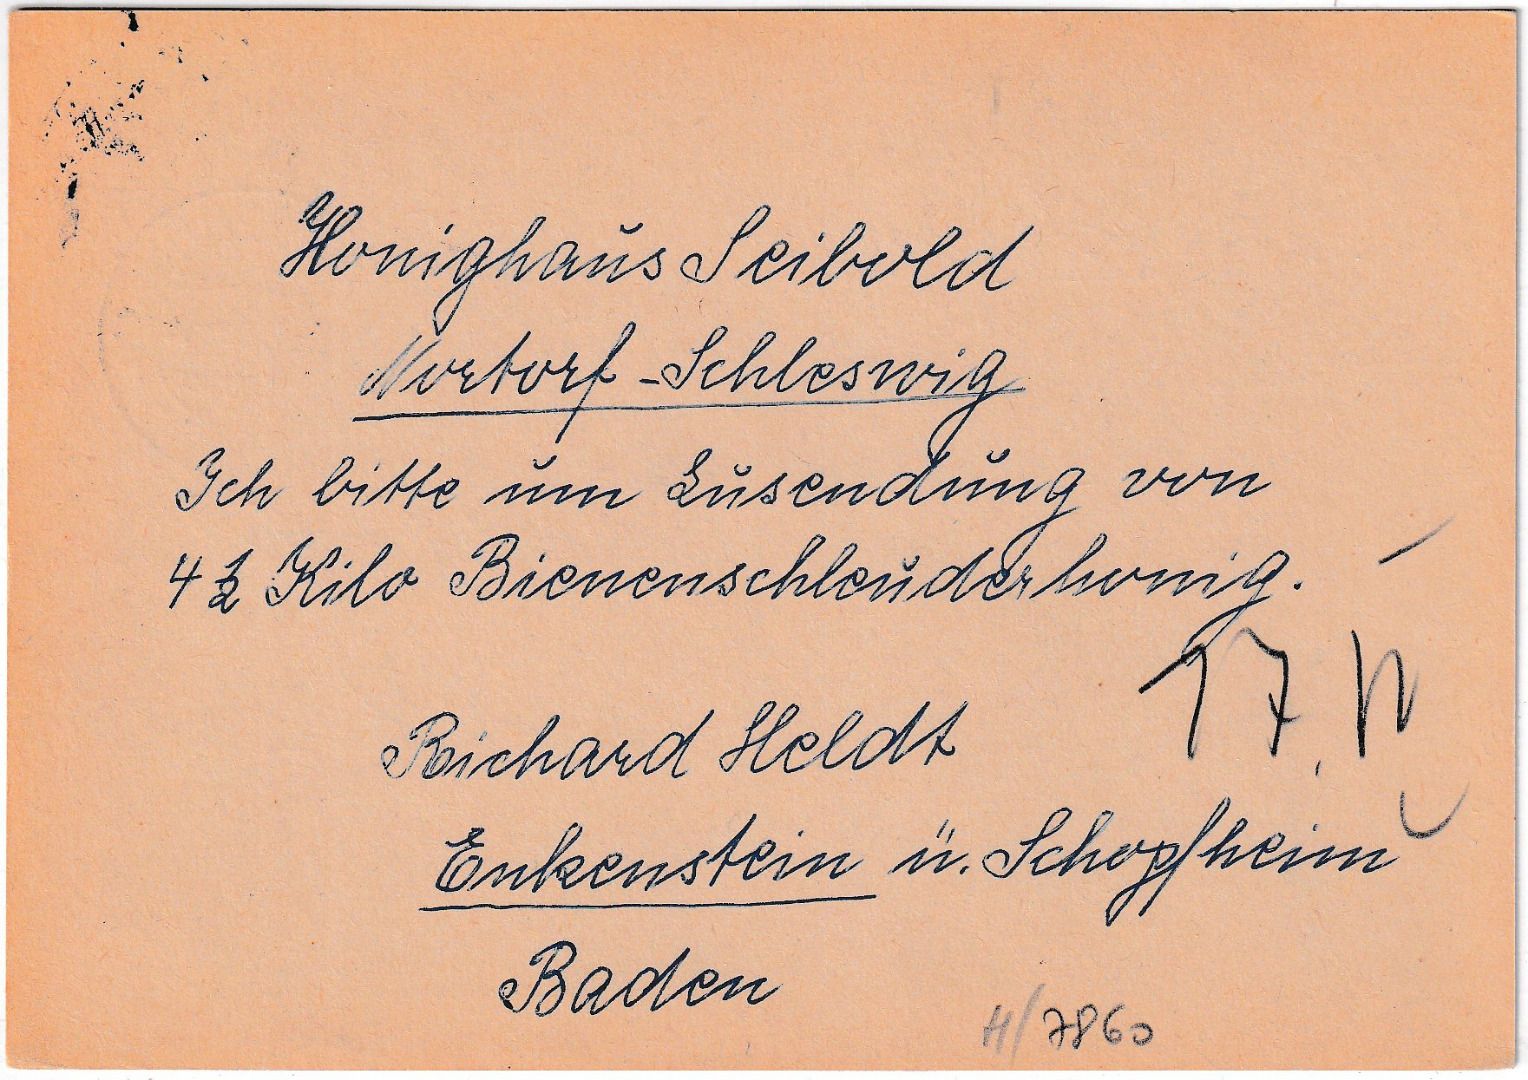 Honighaus Seibold
Nortorf - Schleswig
Ich bitte um Zusendung von
4 1/2 Kilo Bienenschleuderhonig.
17.
Richard Heldt
Enkenstein ü. Schopfheim
Baden
H/7860